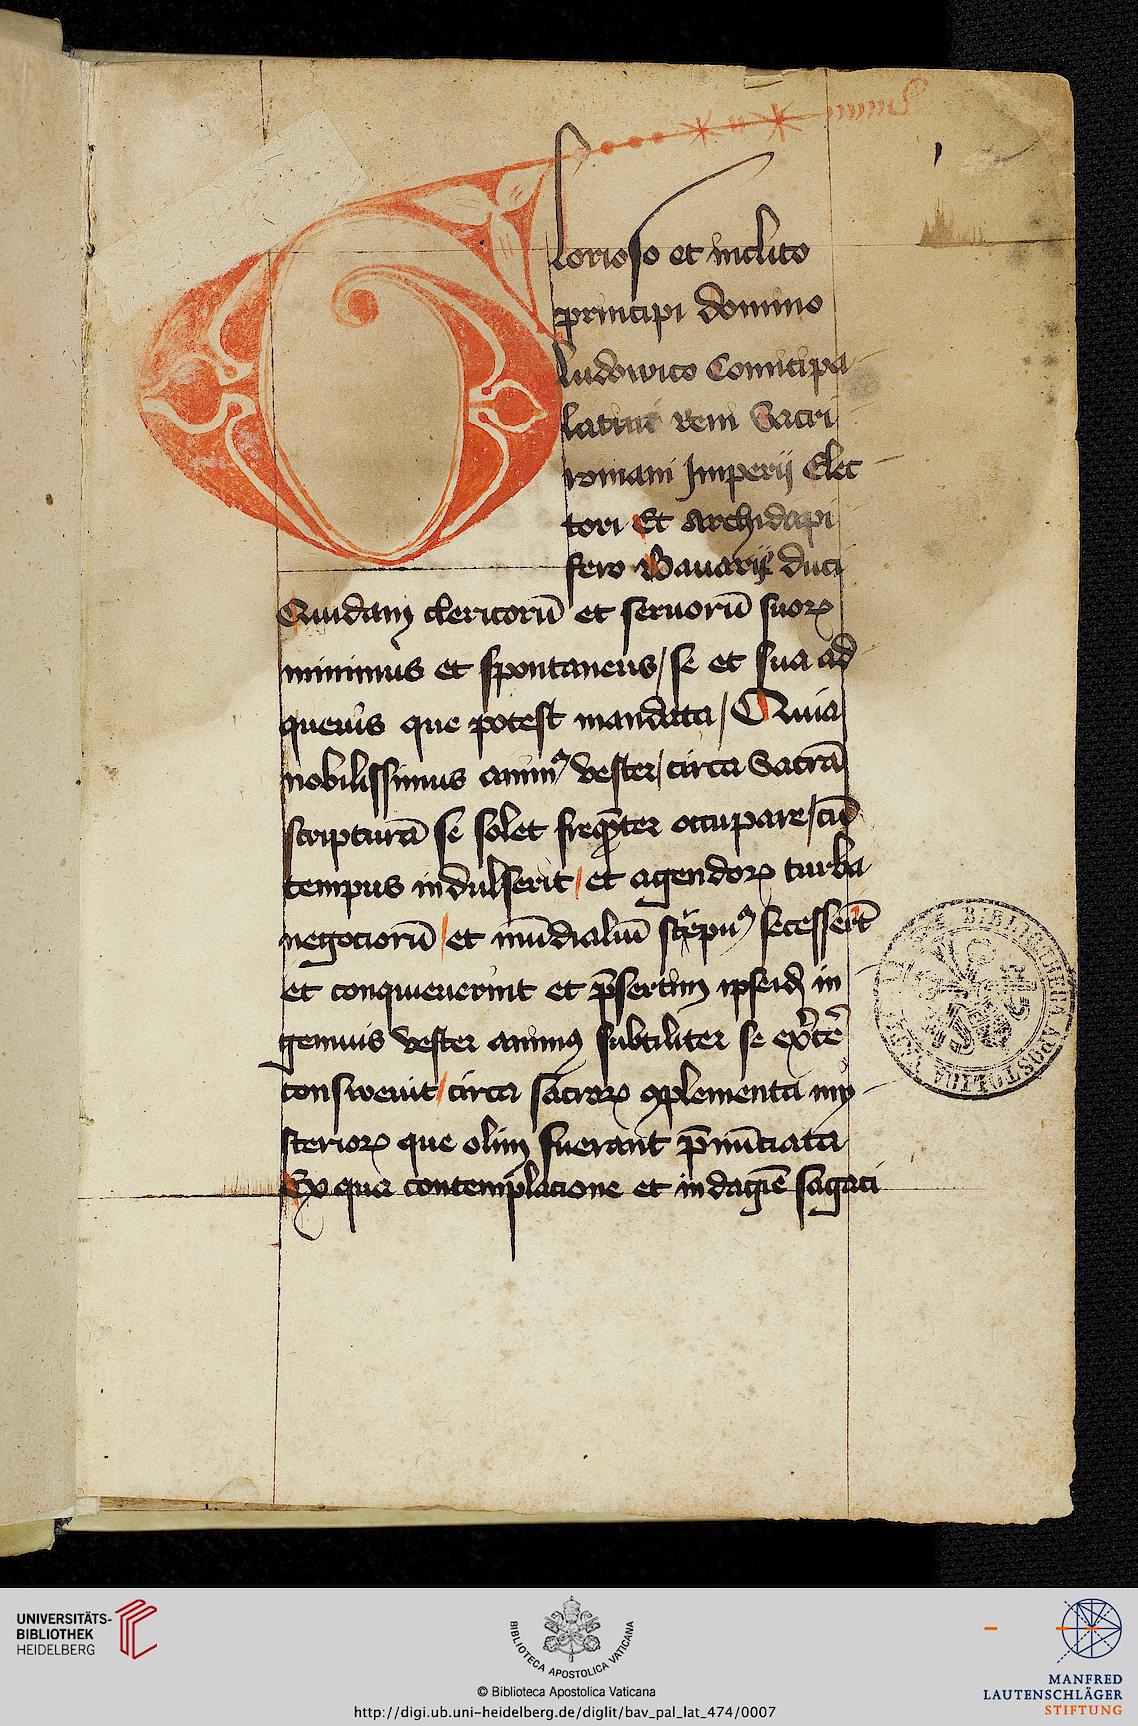 Glorioso et inclito
principi domino
ludowico Comitipa
latino reni Sacri
romani Imperij Elec
tori Et Archidapi
fero Bavarie duci
Quidam clericorū et seruorū suoꝝ
minimus et spontaneus / se et sua ad
queuis que potest mandata / Quia
nobilissimus animꝰ vester / circa Sacrā
scripturā se solet freqn̄ter occupare / cū
tempus indulserit / et agendoꝝ turba
negociorū / et mūdialiū secesserīt
et conquieuerint et p̄sertim in
genuis vester animꝰ subtiliter se
consweuit / circa sacroꝝ ꝯplementa my
sterioꝝ que olim fuerant p̄nūciata
Ex qua contemplacione et indagīe sagaci
BIBLIOTHECA APOSTOLICA VATICANA
UNIVERSITÄTS-
BIBLIOTHEK
HEIDELBERG
BIBLIOTECA APOSTOLICA VATICANA
© Biblioteca Apostolica Vaticana
http://digi.ub.uni-heidelberg.de/diglit/bav_pal_lat_474/0007
MANFRED
LAUTENSCHLÄGER
STIFTUNG